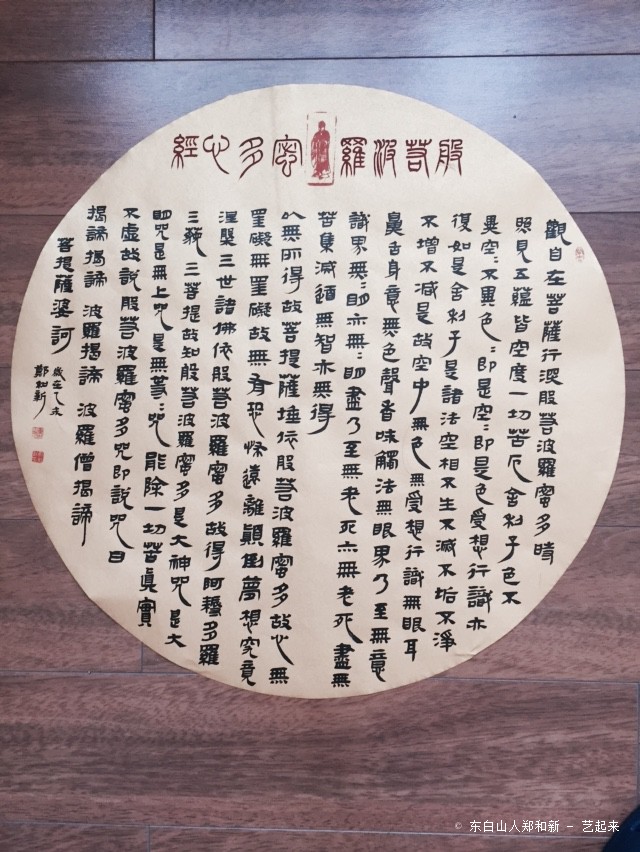 般若波羅蜜多心經
觀自在菩薩行深般若波羅蜜多時
照見五蘊皆空度一切苦厄舍利子色不
異空：不異色：即是空：即是色受想行識亦
復如是舍利子是諸法空相不生不滅不垢不淨
不增不減是故空中無色無受想行識無眼耳
鼻舌身意無色聲香味觸法無眼界乃至無意
識界無：明亦無：明盡乃至無老死亦無老死盡無
苦集滅道無智亦無得
以無所得故菩提薩埵依般若波羅蜜多故心無
罣礙無罣礙故無有恐怖遠離顛倒夢想究竟
涅槃三世諸佛依般若波羅蜜多故得阿耨多羅
三藐三菩提故知般若波羅蜜多是大神咒是大
明咒是無上咒是無等：咒能除一切苦真實
不虛故說般若波羅蜜多咒即說咒曰
揭諦揭諦 波羅揭諦 波羅僧揭諦
菩提薩婆訶
歲在乙未
鄭和新
© 东白山人郑和新 – 艺起来